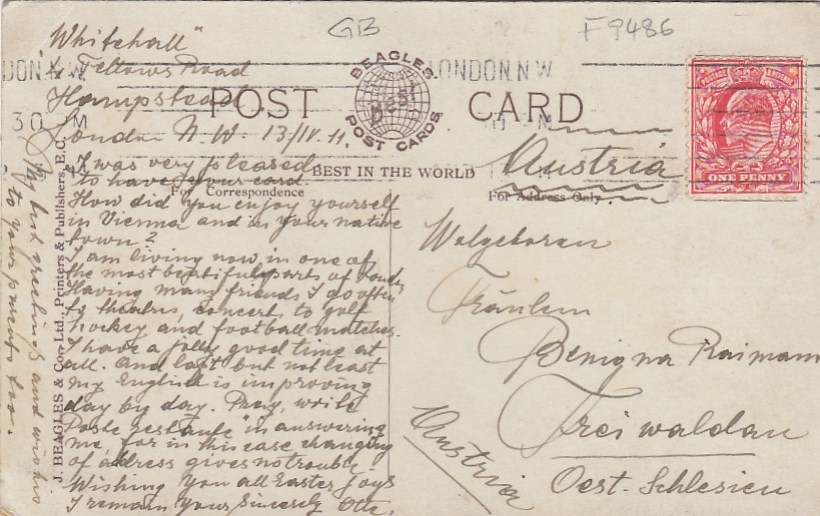 GB
F9486
"Whitehall"
Fellows Road
Hampstead
London N.W. 13/IV.11.
LONDON.N.W
30 PM
BEAGLES
Best
POST CARDS
POST CARD
BEST IN THE WORLD
For Correspondence
For Address Only.
POSTAGE REVENUE
ONE PENNY
I was very pleased
to have your card.
How did you enjoy yourself
in Vienna and in your native
town?
I am living now in one of
the most beautiful parts of London
Having many friends I go often
to theatres, concert, to golf
hockey and football matches.
I have a jolly good time at
all. And last but not least
my English is improving
day by day. Pray, write
Poste restante in answering
me, for in this case changing
of address gives no trouble.
Wishing you all Easter joys
I remain Yours Sincerely Otto.
My best greetings and wishes
to your parents too.
J. BEAGLES & Co., Ltd., Printers & Publishers, E.C.
Austria
Wolgeboren
Fräulein
Benigna Raimann
Freiwaldau
Oest.-Schlesien
Austria